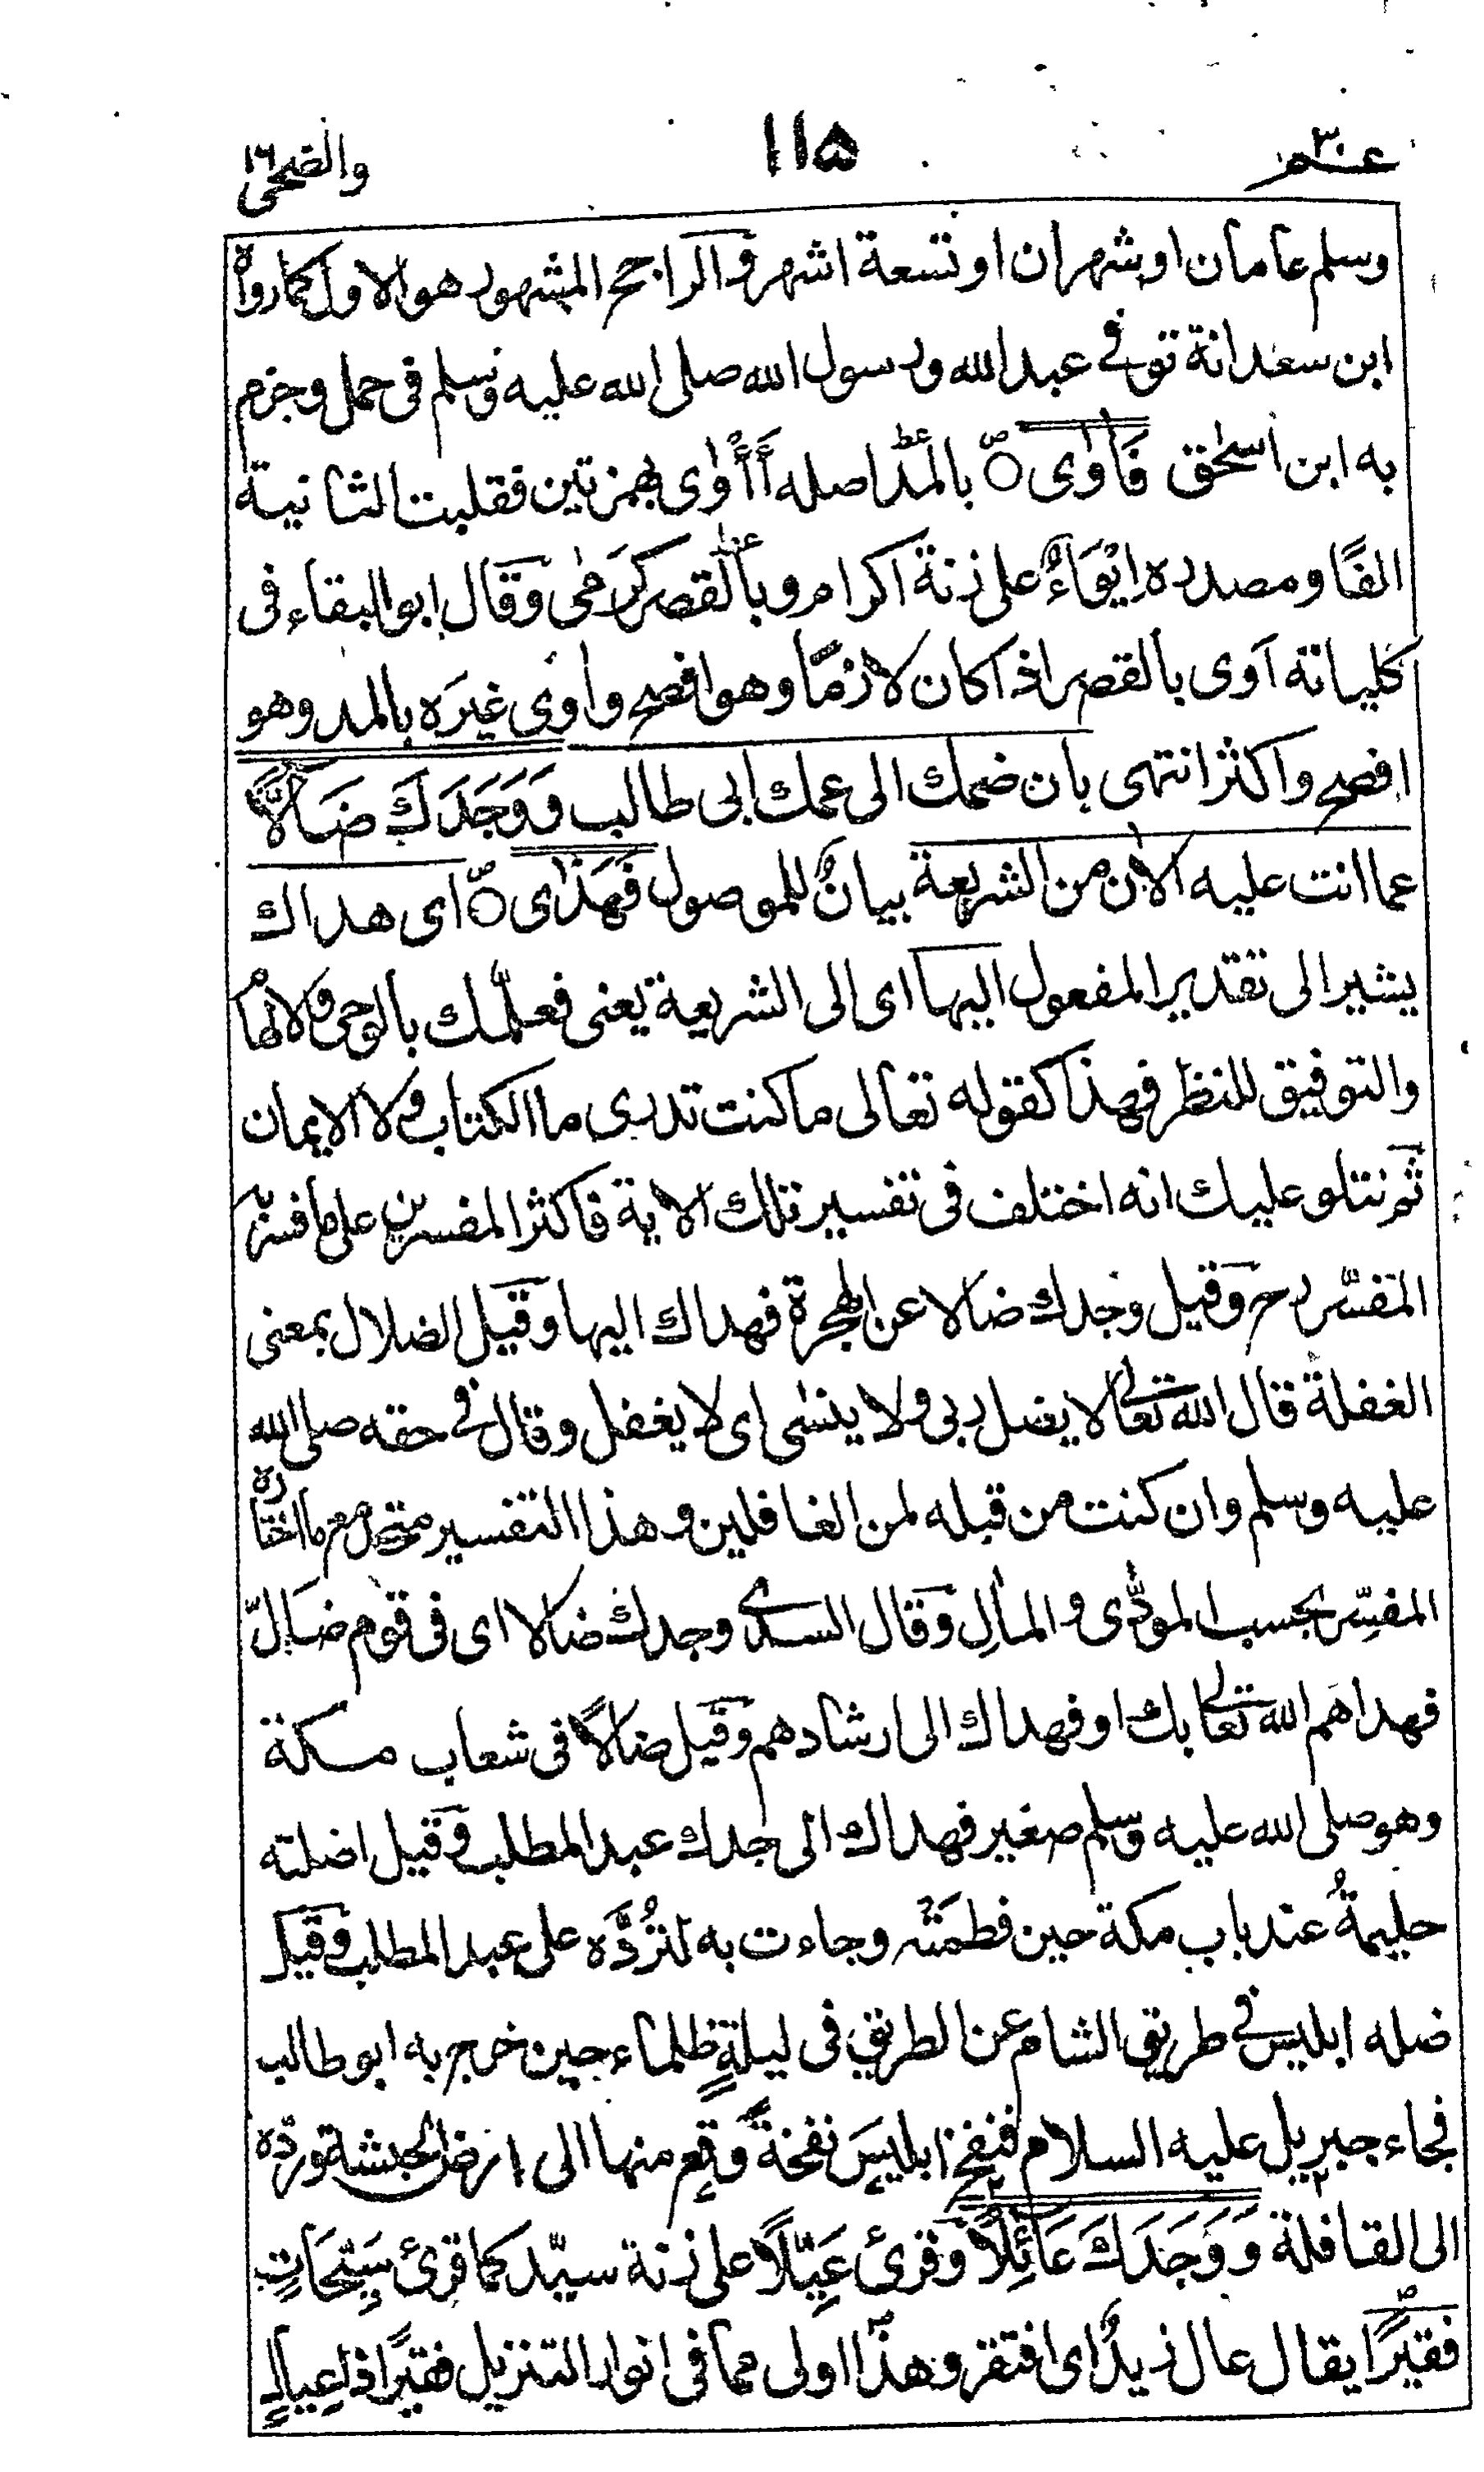 عـم ٣٠
١١۵
والضحى ١٦
وسلم عامان او شهران او تسعة اشهر والراجح المشهور هو الاول كما رواه
ابن سعد انه توفى عبد الله ورسول الله صلى الله عليه وسلم فى حمل وجزم
به ابن اسحٰق فَاٰوٰى ۝ بالمد اصله أَأْوٰى بهمزتين فقلبت الثانية
الفًا ومصدره اِيْوَاءٌ على زنة اكرام وبالقصر كرَمٰى وقال ابو البقاء فى
كلياته آوى بالقصر اذا كان لازمًا وهو افصح واٰوى غيرَه بالمد وهو
افصح واكثر انتهى بان ضمك الى عمك ابى طالب وَوَجَدَكَ ضَآلًّا
عما انت عليه الاٰن من الشريعة بيانٌ للموصول فَهَدٰى ۝ اى هداك
يشير الى تقدير المفعول اليها اى الى الشريعة يعنى فعلّمك بالوحى والالهام
والتوفيق للنظر فهذا كقوله تعالى ما كنت تدرى ما الكتاب ولا الايمان
ثم نتلو عليك انه اختلف فى تفسير تلك الاية فاكثر المفسرين على ما فسر به
المفسّر رح وقيل وجدك ضالا عن الهجرة فهداك اليها وقيل الضلال بمعنى
الغفلة قال الله تعالى لا يضل ربى ولا ينسٰى اى لا يغفل وقال فى حقه صلى الله
عليه وسلم وان كنت من قبله لمن الغافلين وهذا التفسير متحد مع ما اختاره
المفسِّر بحسب المودّٰى والماٰلِ وقال السدى وجدك ضالا اى فى قوم ضَالّ
فهداهم الله تعالى بك او فهداك الى ارشادهم وقيل ضالًا فى شعاب مكة
وهو صلى الله عليه وسلم صغير فهداك الى جدك عبد المطلب وقيل اضلته
حليمةُ عند باب مكة حين فطمَتْه وجاءت به لتَرُدَّه على عبد المطلب وقيل
ضله ابليس فى طريق الشام عن الطريق فى ليلةٍ ظلماء حين خرج به ابو طالب
فجاء جبريل عليه السلام فنفخ ابليسَ نفخةً وقع منها الى ارض الحبشة وردّه
الى القافلة وَوَجَدَكَ عَائِلًا وقرئ عَيِّلًا على زنة سيّد كما قرئ سَيِّحَاتٍ
فقيرًا يقال عال زيدٌ اى افتقر وهذا اولى مما فى انوار التنزيل فقيرًا ذا عيالٍ